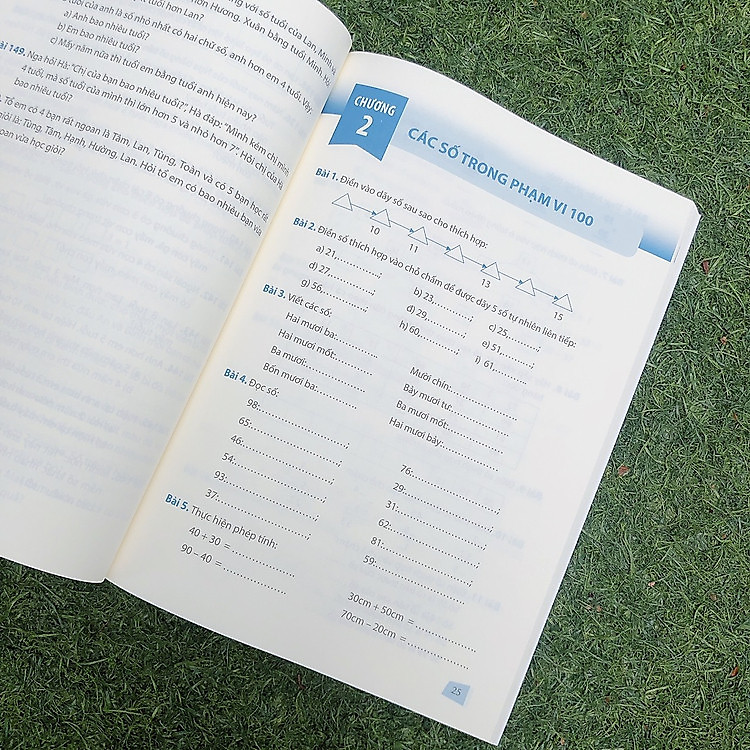 ng với số tuổi của Lan, Minh và
hơn Hương. Xuân bằng tuổi Minh, H
tuổi hơn Lan?
tuổi của anh là số nhỏ nhất có hai chữ số, anh hơn em 4 tuổi. Vậy,
a) Anh bao nhiêu tuổi?
b) Em bao nhiêu tuổi?
c) Mấy năm nữa thì tuổi em bằng tuổi anh hiện nay?
ài 149. Nga hỏi Hà: "Chị của bạn bao nhiêu tuổi?", Hà đáp: "Mình kém chị mình
4 tuổi, mà số tuổi của mình thì lớn hơn 5 và nhỏ hơn 7". Hỏi chị của Hà
bao nhiêu tuổi?
Tổ em có 4 bạn rất ngoan là Tâm, Lan, Tùng, Toàn và có 5 bạn học rất
giỏi là: Tùng, Tâm, Hạnh, Hường, Lan. Hỏi tổ em có bao nhiêu bạn vừa
oan vừa học giỏi?
CHƯƠNG
2
CÁC SỐ TRONG PHẠM VI 100
Bài 1. Điền vào dãy số sau sao cho thích hợp:
10 11 13 15
Bài 2. Điền số thích hợp vào chỗ chấm để được dãy 5 số tự nhiên liên tiếp:
a) 21,............; b) 23,............; c) 25,............;
d) 27,............; d) 29,............; e) 51,............;
g) 56,............; h) 60,............; i) 61,............
Bài 3. Viết các số:
Hai mươi ba:............ Mười chín:............
Hai mươi mốt:............ Bảy mươi tư:............
Ba mươi:............ Ba mươi mốt:............
Bốn mươi ba:............ Hai mươi bảy:............
Bài 4. Đọc số:
98:........................; 76:........................;
65:........................; 29:........................;
46:........................; 31:........................;
54:........................; 62:........................;
93:........................; 81:........................;
37:........................; 59:........................
Bài 5. Thực hiện phép tính:
40 + 30 =............... 30cm + 50cm =...............
90 – 40 =............... 70cm – 20cm =...............
25